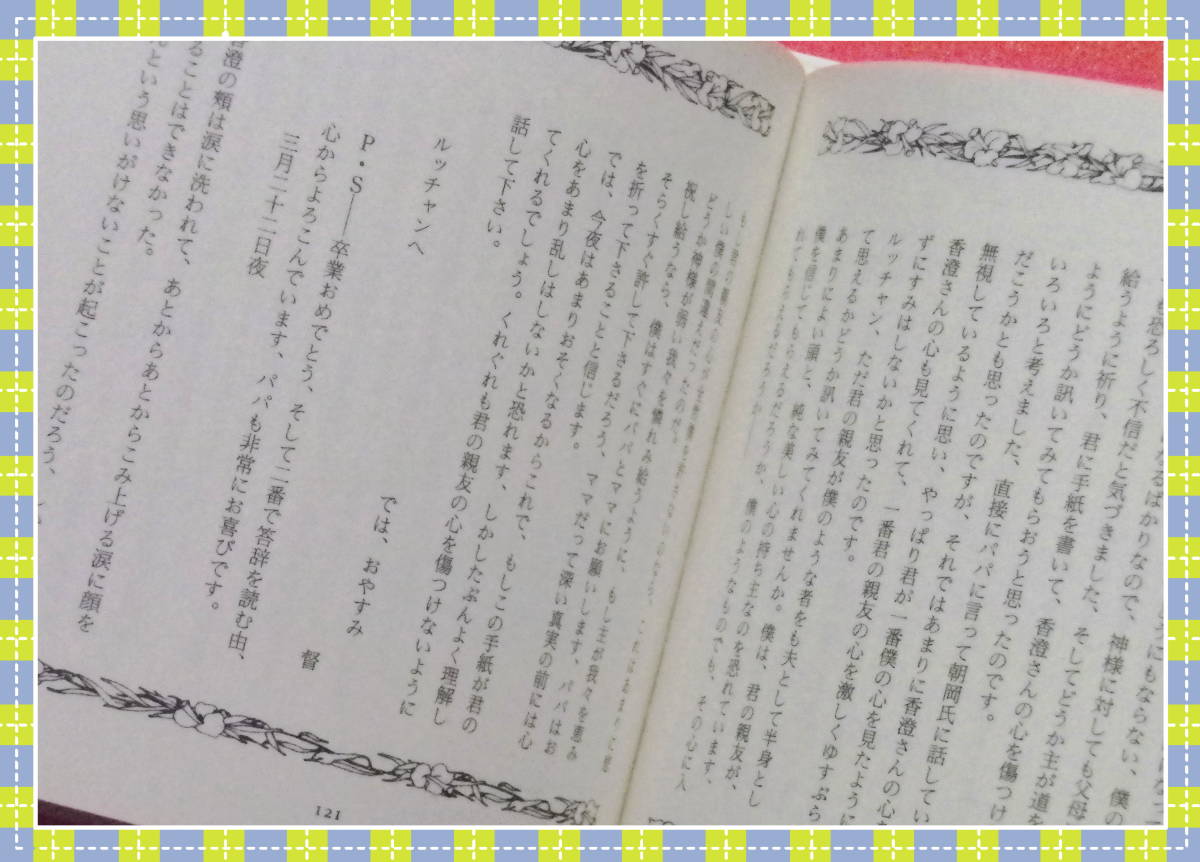 も恐ろしく不信だと気づきました、そしてどうか主が道を
給うように祈り、君に手紙を書いて、香澄さんの心を傷つけ
ようにどうか訊いてみてもらおうと思ったのです。
いろいろと考えました、直接にパパに言って朝岡氏に話してい
だこうかとも思ったのですが、それではあまりに香澄さんの心を
無視しているように思い、やっぱり君が一番僕の心を見たように
香澄さんの心も見てくれて、一番君の親友の心を激しくゆすぶら
ずにすみはしないかと思ったのです。
ルッチャン、ただ君の親友が僕のような者をも夫として半身とし
て思えるかどうか訊いてみてくれませんか。僕は、君の親友が、
あまりによい頭と、純な美しい心の持ち主なのを恐れています、
僕を信じてもらえるだろうか、僕のようなものでも、その心に入
しい僕の間違えだったのだ
どうか神様が弱い我々を憐れみ給うように、もし主が我々を恵み
祝し給うなら、僕はすぐにパパとママにお願いします、パパはお
そらくすぐ許して下さるだろう、ママだって深い真実の前には心
を折って下さることと信じます。
では、今夜はあまりおそくなるからこれで、もしこの手紙が君の
心をあまり乱しはしないかと恐れます、しかしたぶんよく理解し
てくれるでしょう。くれぐれも君の親友の心を傷つけないように
話して下さい。
では、おやすみ
督
ルッチャンへ
P・S――卒業おめでとう、そして二番で答辞を読む由、
心からよろこんでいます、パパも非常にお喜びです。
三月二十二日夜
香澄の頰は涙に洗われて、あとからあとからこみ上げる涙に顔を
ることはできなかった。
という思いがけないことが起こったのだろう、
121